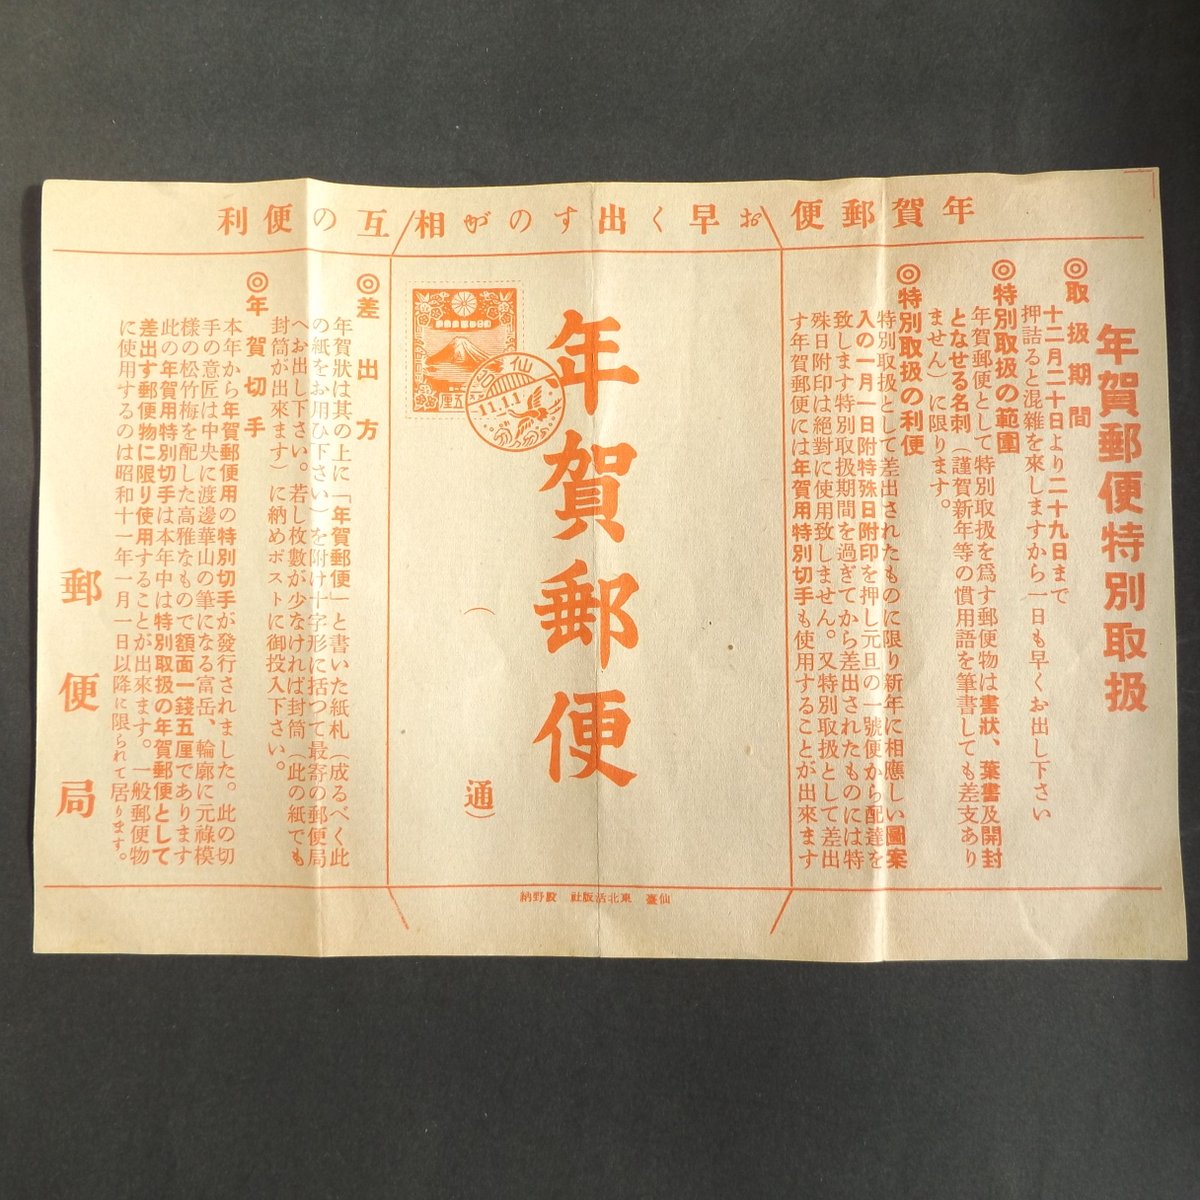 年賀郵便お早く出すのが相互の便利
年賀郵便特別取扱
◎取扱期間
十二月二十日より二十九日まで
押詰ると混雜を來しますから一日も早くお出し下さい
◎特別取扱の範圍
年賀郵便として特別取扱を爲す郵便物は書狀、葉書及開封
となせる名刺（謹賀新年等の慣用語を筆書しても差支あり
ません）に限ります。
◎特別取扱の利便
特別取扱として差出されたものに限り新年に相應しい圖案
入の一月一日附特殊日附印を押し元旦の一號便から配達を
致します特別取扱期間を過ぎてから差出されたものには特
殊日附印は絕對に使用致しません。又特別取扱として差出
す年賀郵便には年賀用特別切手も使用することが出來ます
年賀郵便
（　　通）
仙台
11.1.1
五厘
◎差出方
年賀狀は其の上に「年賀郵便」と書いた紙札（成るべく此
の紙をお用ひ下さい）を附け十字形に括つて最寄の郵便局
へお出し下さい。若し枚數が少なければ封筒（此の紙でも
封筒が出來ます）に納めポストに御投入下さい。
◎年賀切手
本年から年賀郵便用の特別切手が發行されました。此の切
手の意匠は中央に渡邊華山の筆になる富岳、輪廓に元祿模
樣の松竹梅を配した高雅なもので額面一錢五厘であります
此の年賀用特別切手は本年中は特別取扱の年賀郵便として
差出す郵便物に限り使用することが出來ます。一般郵便物
に使用するのは昭和十一年一月一日以降に限られて居ります。
郵便局
仙臺　東北活版社　殿野納